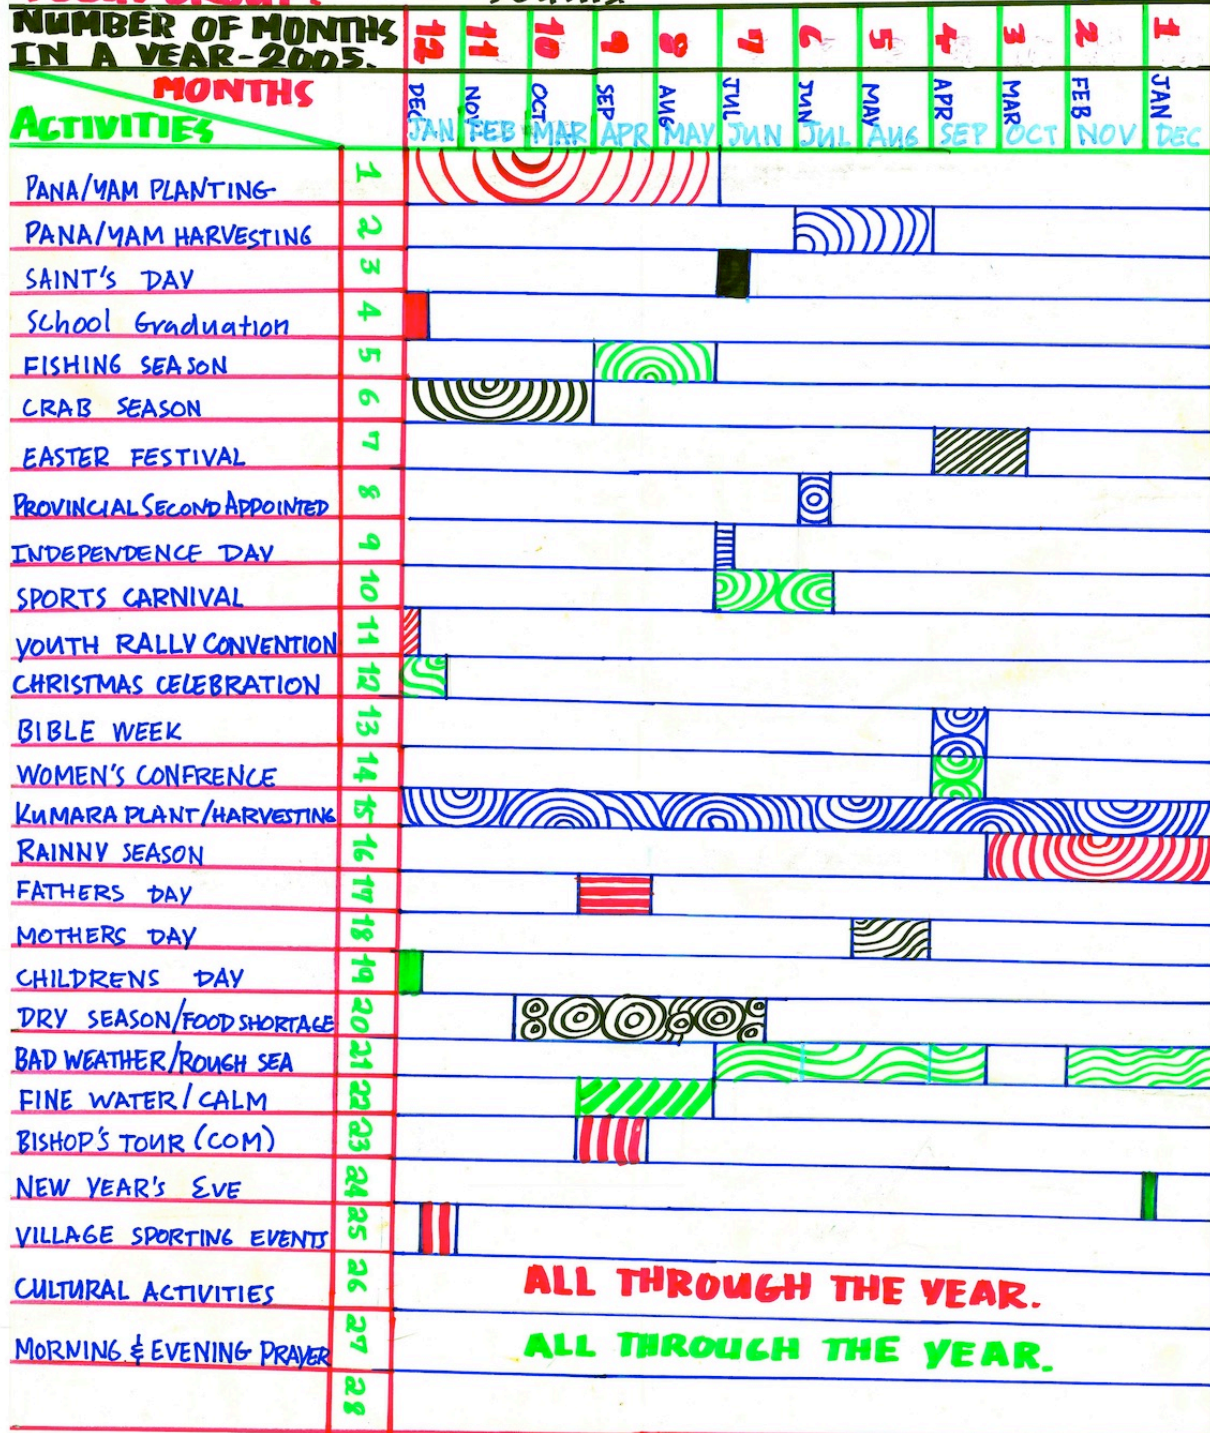 NUMBER OF MONTHS
IN A YEAR-2005.
12 11 10 9 8 7 6 5 4 3 2 1
MONTHS
ACTIVITIES
DEC NOV OCT SEP AUG JUL JUN MAY APR MAR FEB JAN
JAN FEB MAR APR MAY JUN JUL AUG SEP OCT NOV DEC
PANA/YAM PLANTING 1
PANA/YAM HARVESTING 2
SAINT'S DAY 3
School Graduation 4
FISHING SEASON 5
CRAB SEASON 6
EASTER FESTIVAL 7
PROVINCIAL SECOND APPOINTED 8
INDEPENDENCE DAY 9
SPORTS CARNIVAL 10
YOUTH RALLY CONVENTION 11
CHRISTMAS CELEBRATION 12
BIBLE WEEK 13
WOMEN'S CONFRENCE 14
KUMARA PLANT/HARVESTING 15
RAINNY SEASON 16
FATHERS DAY 17
MOTHERS DAY 18
CHILDRENS DAY 19
DRY SEASON/FOOD SHORTAGE 20
BAD WEATHER/ROUGH SEA 21
FINE WATER/CALM 22
BISHOP'S TOUR (COM) 23
NEW YEAR'S EVE 24
VILLAGE SPORTING EVENTS 25
CULTURAL ACTIVITIES 26 ALL THROUGH THE YEAR.
MORNING & EVENING PRAYER 27 ALL THROUGH THE YEAR.
28